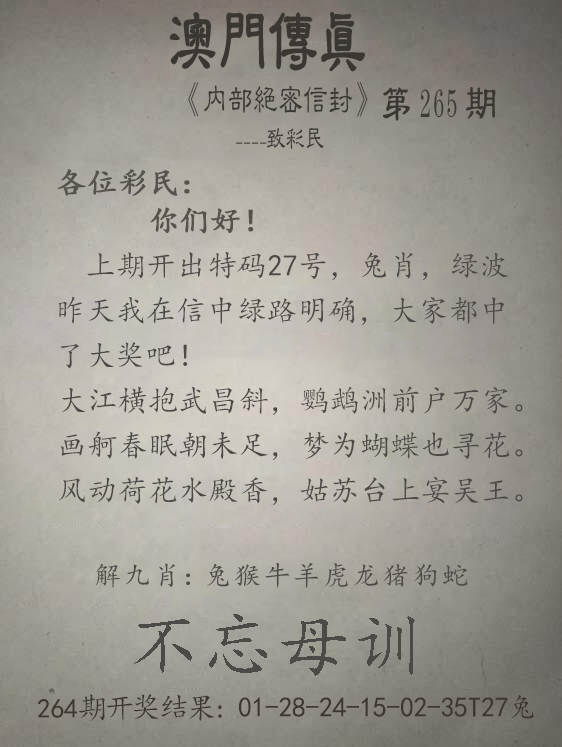 澳門傳眞
《内部絕密信封》第265期
----致彩民
各位彩民：
你们好！
上期开出特码27号，兔肖，绿波
昨天我在信中绿路明确，大家都中
了大奖吧！
大江横抱武昌斜，鹦鹉洲前户万家。
画舸春眠朝未足，梦为蝴蝶也寻花。
风动荷花水殿香，姑苏台上宴吴王。
解九肖：兔猴牛羊虎龙猪狗蛇
不忘母训
264期开奖结果：01-28-24-15-02-35T27兔